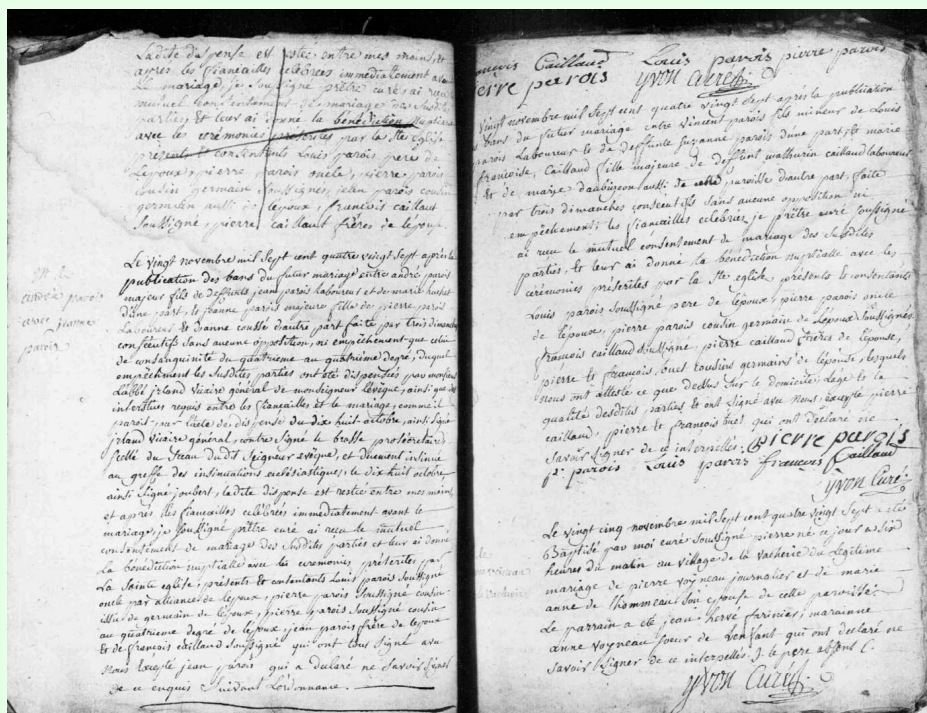 Ladite dispense est restée entre mes mains, et
après les fiançailles célébrées immédiatement avant
le mariage, je soussigné prêtre curé ai reçu
mutuel consentement de mariage des susdites
parties et leur ai donné la bénédiction nuptiale
avec les cérémonies préscrites par la Ste Eglise
présents, et consentants Louis parois pere de
lepoux, pierre parois oncle, pierre parois
cousin germain soussignés, jean parois cousin
germain aussi de lepoux, francois caillaut
soussigné, pierre caillaut freres de lepouse
andré parois
avec jeanne
parois
Le vingt novembre mil sept cent quatre vingt sept après la
publication des bans du futur mariage entre andré parois
majeur fils de deffunts jean parois laboureur et de marie
d'une part, et jeanne parois majeure fille de pierre parois
laboureur et danne cousse d'autre part faite par trois dimanches
consécutifs sans aucune opposition, ni empêchement que celui
de consanguinité du quatrieme au quatrieme degré, duquel
empêchement les susdites parties ont été dispensées par monsieur
l'abbé irland vicaire général de monseigneur l'évêque, ainsi que des
interstices requis entre les fiançailles et le mariage, comme il
parois par l'acte de dispense du dix huit octobre, ainsi signé
irland vicaire général, contre signé le brasse prosecrétaire
scellé du sceau dudit seigneur evêque, et duement insinué
au greffe des insinuations ecclésiastiques, le dix huit octobre
ainsi signé joubert, ladite dispense est restée entre mes mains
et après les fiancailles célébrés immédiatement avant le
mariage, je soussigné prêtre curé ai reçu le mutuel
consentement de mariage des susdites parties et leur ai donné
la bénédiction nuptialle avec les ceremonies, préscrites par
la sainte eglise; présents et contentants Louis parois soussigné
oncle par alliance de lepoux, pierre parois soussigné cousin
issu de germain de lepoux, pierre parois soussigné cousin
au quatrieme degré de lepoux, jean parois frère de lepoux
et de francois caillaud soussigné qui ont tous signé avec
nous excepté jean parois qui a déclaré ne savoir signer
de ce enquis suivant l'ordonnance.
françois Caillaud Louis parois pierre parois
pierre parois yvon curé
vingt novembre mil sept cent quatre vingt sept après la publication
bans du futur mariage entre vincent parois fils mineur de Louis
parois laboureur et de deffunte suzanne parois d'une part, et marie
françoise caillaud fille majeure de deffunt mathurin caillaud laboureur
et de marie daubigeon aussi de cette paroisse d'autre part, faite
par trois dimanches consécutifs sans aucune opposition ni
empêchement; les fiançailles célébrées, je prêtre curé soussigné
ai reçu le mutuel consentement de mariage des susdites
parties, et leur ai donné la bénédiction nuptialle avec les
cérémonies préscrites par la Ste eglise, présents et contentants
Louis parois soussigné pere de lepoux, pierre parois oncle
de lepoux, pierre parois cousin germain de lepoux soussignés,
françois caillaud soussigné, pierre caillaud freres de lepouse,
pierre et françois cousins germains de lepouse, lesquels
nous ont attesté ce que dessus sur le domicile, lage et la
qualité desdites parties et ont signé avec nous excepté pierre
caillaud, pierre et françois qui ont déclaré ne
savoir signer de ce interpellés. pierre parois
parois Louis parois françois Caillaud
yvon Curé
Le vingt cinq novembre mil sept cent quatre vingt sept a été
Baptisé par moi curé soussigné pierre né ce jour a six
heures du matin au village de la vacherie du légitime
mariage de pierre voyneau journalier et de marie
anne de lhommeau son epouse de cette paroisse.
Le parrain a été jean hervé farinier, marainne
anne voyneau soeur de lenfant qui ont déclaré ne
savoir signer de ce interpellés. le pere absent
yvon Curé